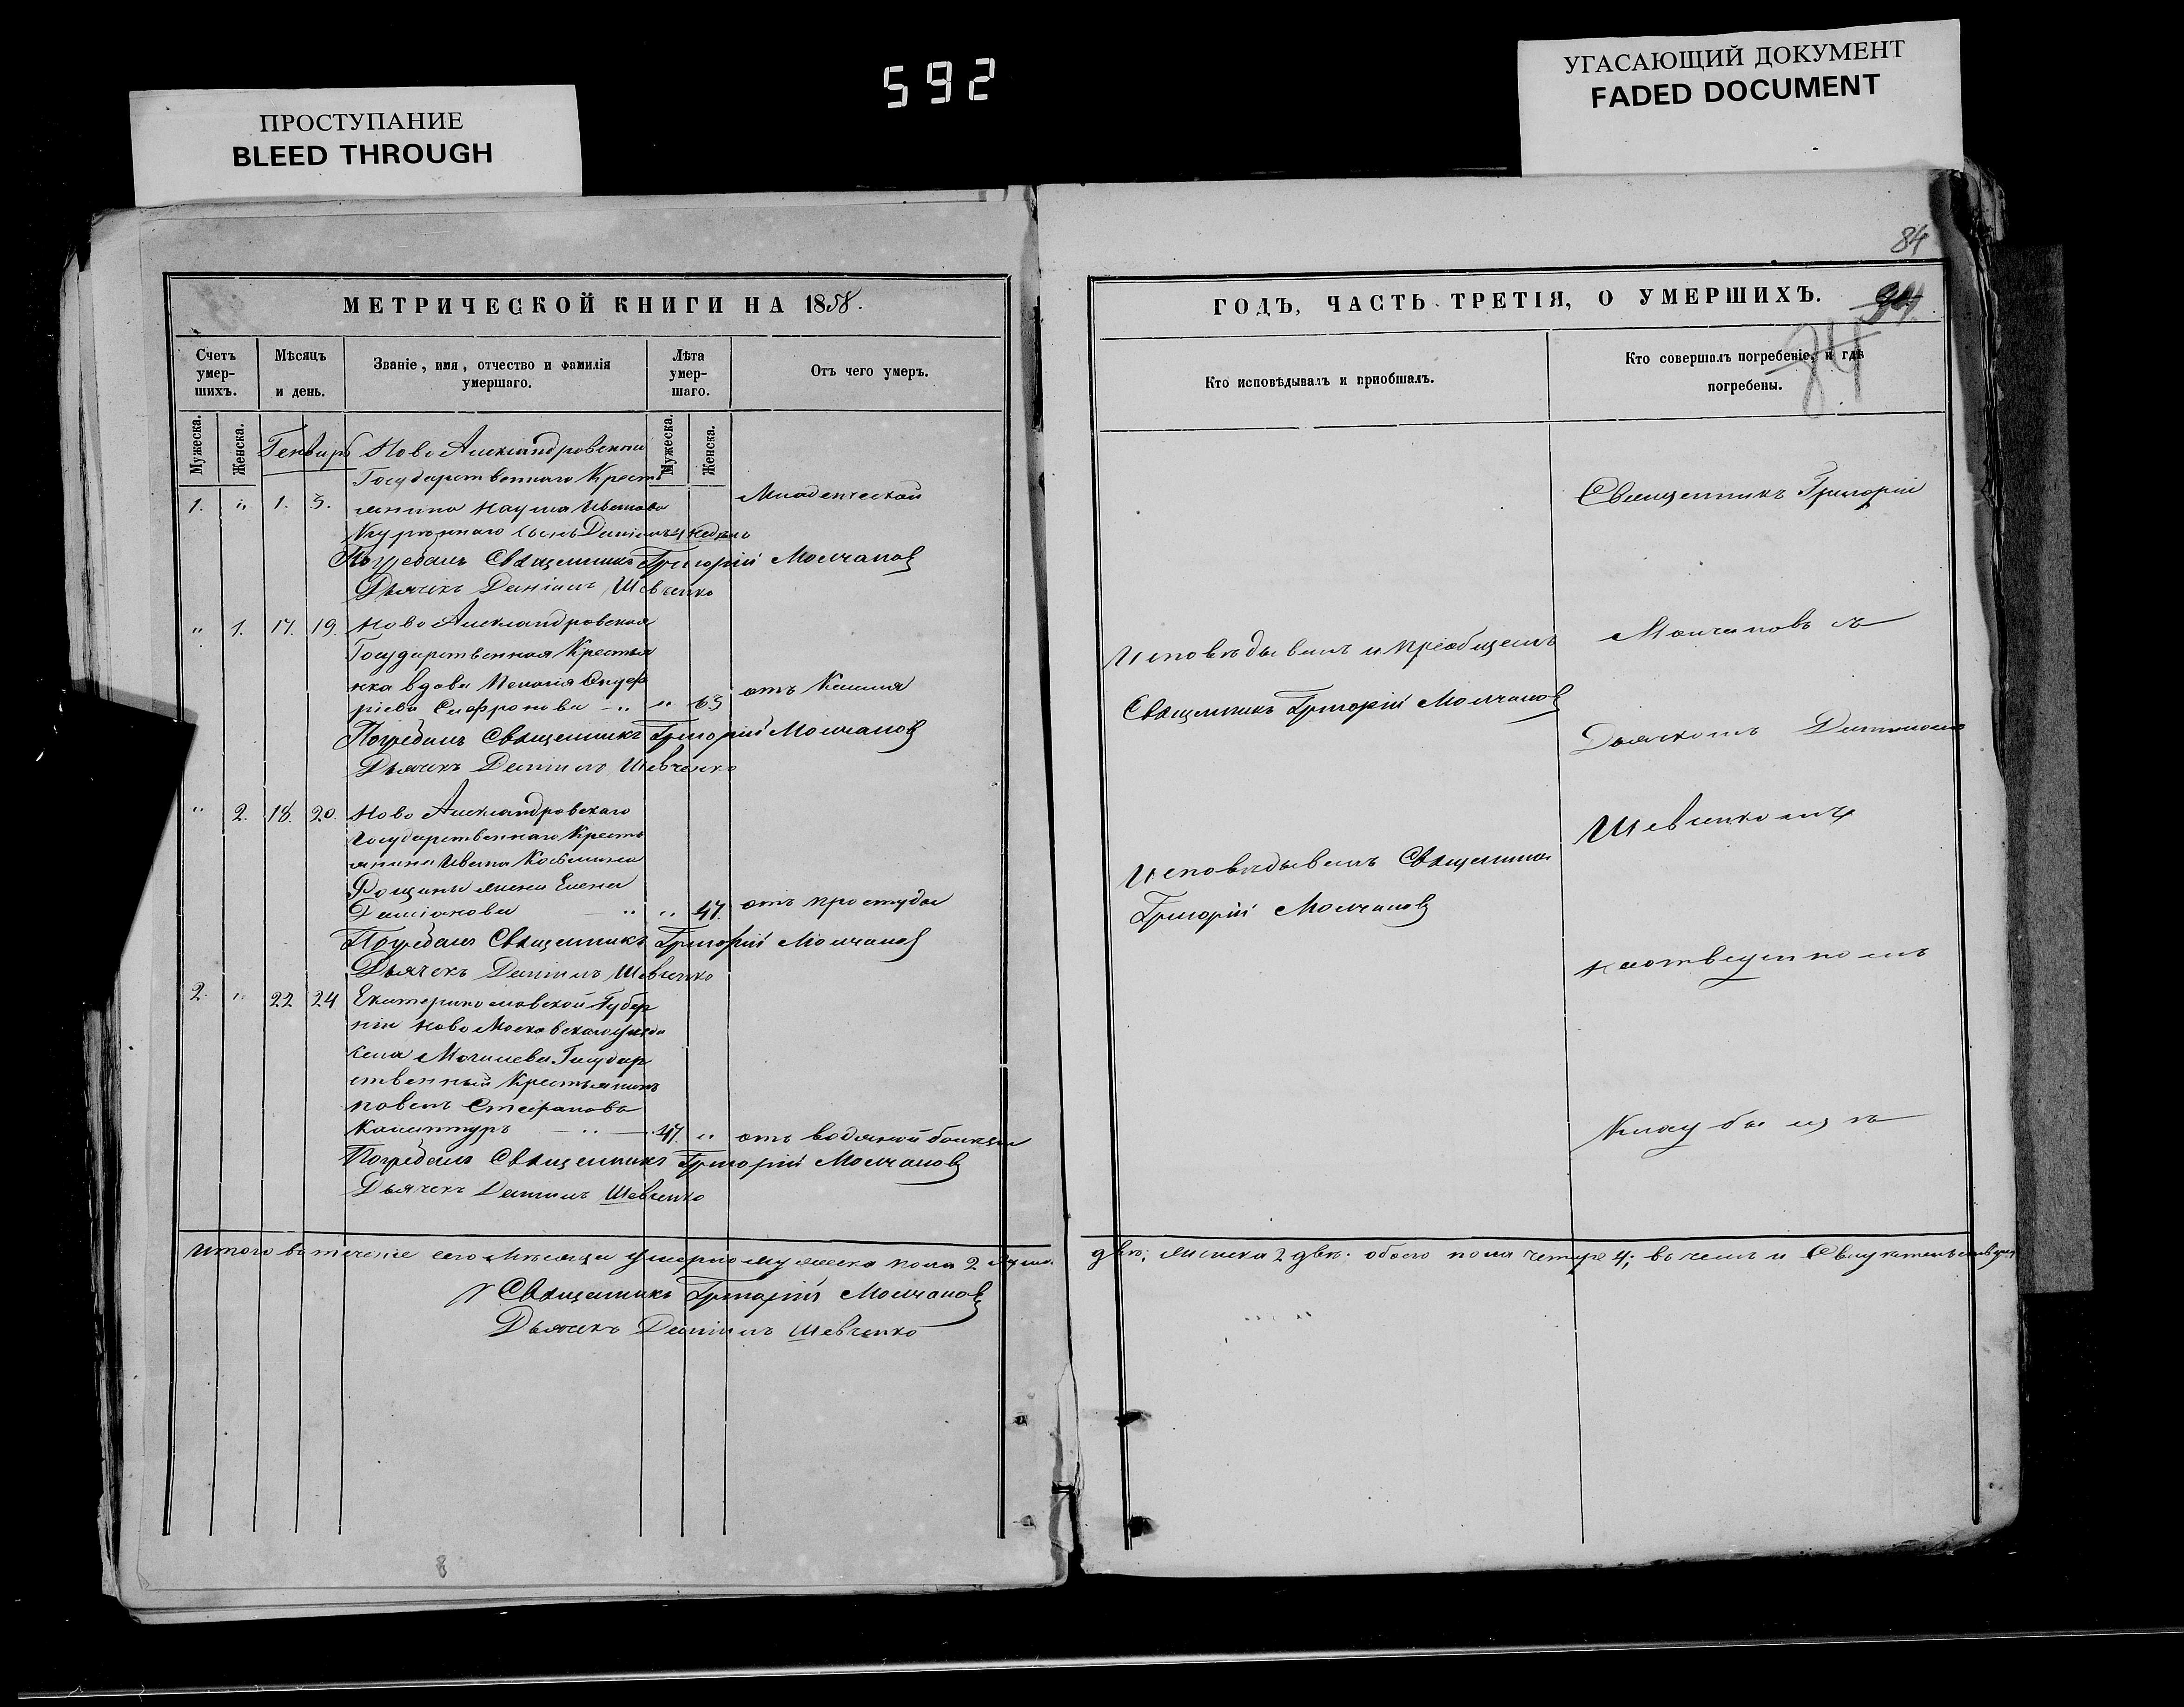 ПРОСТУПАНИЕ
BLEED THROUGH
592
УГАСАЮЩИЙ ДОКУМЕНТ
FADED DOCUMENT
84
МЕТРИЧЕСКОЙ КНИГИ НА 1858.
Счетъ умер-шихъ.
Мѣсяцъ и день.
Званіе, имя, отчество и фамилія умершаго.
Лѣта умер-шаго.
Отъ чего умеръ.
Мужеска.
Женска.
Мужеска.
Женска.
Генварь
Ново Александровскаго
Государственнаго Кресть
1. " 1. 3. янина Наума Иванова
сынъ Даніилъ 4 недѣль
Младенческой
Погребалъ Священникъ Григорій Молчановъ
Дьячекъ Даніилъ Шевченко
" 1. 17. 19. Ново Александровская
Государственная Крестья
нка вдова
Сафронова " " 63 отъ Кашля
Погребалъ Священникъ Григорій Молчановъ
Дьячекъ Даніилъ Шевченко
" 2. 18. 20. Ново Александровскаго
Государственнаго Кресть
янина Ивана Космина
жена Елена
Даміанова " " 47. отъ простуды
Погребалъ Священникъ Григорій Молчановъ
Дьячекъ Даніилъ Шевченко
2. " 22 24 Екатеринославской Губер
ніи Ново Московскаго уезда
села Могилева Государ
ственный Крестьянинъ
Павелъ Стефановъ
47. " отъ водяной болезни
Погребалъ Священникъ Григорій Молчановъ
Дьячекъ Даніилъ Шевченко
Итого въ теченіе сего Мѣсяца умерло мужеска пола 2
Священникъ Григорій Молчановъ
Дьячекъ Даніилъ Шевченко
8
ГОДЪ, ЧАСТЬ ТРЕТІЯ, О УМЕРШИХЪ.
84
Кто исповѣдывалъ и приобщалъ.
Кто совершалъ погребеніе, и гдѣ погребены.
Священникъ Григорій
Исповѣдывалъ и пріобщалъ
Священникъ Григорій Молчановъ
Молчановъ съ
Дьячкомъ Даніиломъ
Шевченкомъ
Исповѣдывалъ Священникъ
Григорій Молчановъ
на отведенномъ
Кладбищѣ
двѣ; женска 2 двѣ. обоего пола четыре 4; въ чемъ и Свидетельствуемъ